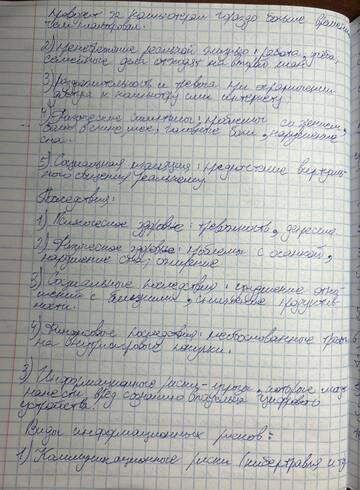 проводит за компьютером гораздо больше времени
чем планировал.
2) пренебрежение реальной жизнью: работа, учёба,
семейные дела отходят на второй план.
3) раздражительность и тревога при ограничении
доступа к компьютеру или интернету.
4) Физические симптомы: проблемы со зрением,
боли в спине, шее, головные боли, нарушение
сна.
5) Социальная изоляция: предпочтение виртуаль-
ного общения реальному.
Последствия:
1) Психическое здоровье: тревожность, депрессия
2) Физическое здоровье: проблемы с осанкой,
нарушение сна, ожирение
3) Социальные последствия: ухудшение отно-
шений с близкими, снижение продуктив-
ности.
4) Финансовые последствия: необоснованные траты
на внутриигровые покупки.
3) Информационные риски - угрозы, которые могут
нанести вред созданию владельца цифрового
устройства.
Виды информационных рисков:
1) Коммуникационные риски (кибертравля и тд